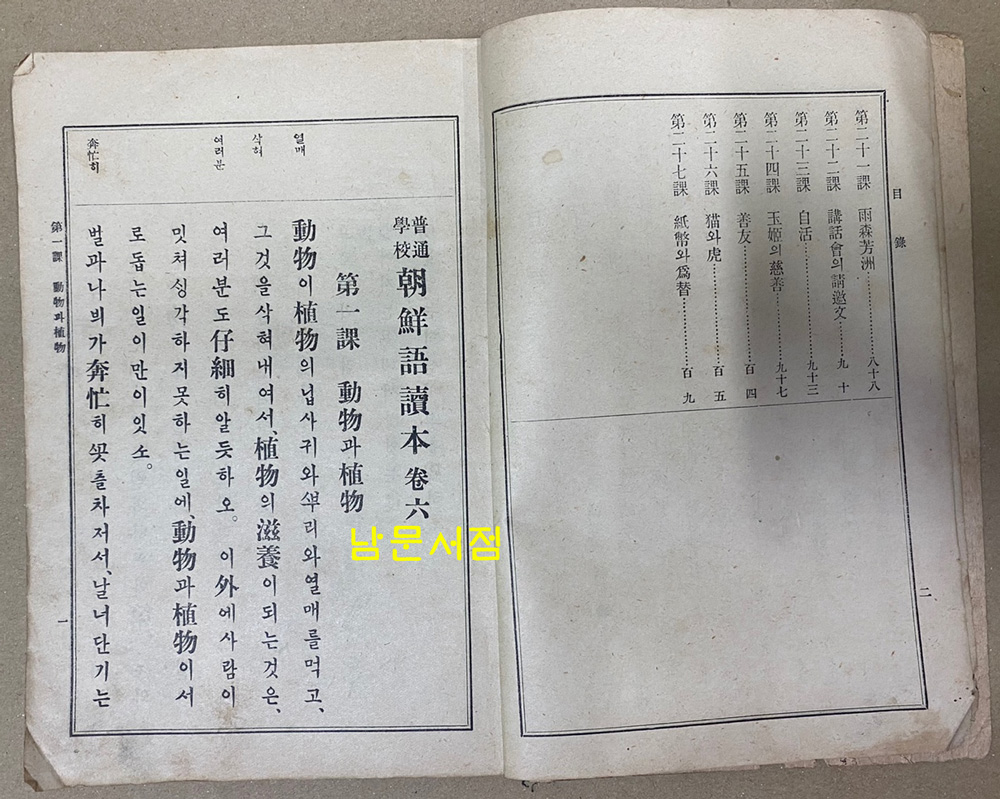 目錄
第二十一課 雨森芳洲 八十八
第二十二課 講話會의請邀文 九十
第二十三課 自活 九十三
第二十四課 玉姬의慈善 九十七
第二十五課 善友 百四
第二十六課 猫와虎 百五
第二十七課 紙幣와爲替 百九
二
普通學校 朝鮮語讀本 卷六
第一課 動物과植物
열매
動物이植物의닙사귀와ᄲᅮ리와열매를먹고、
삭혀
그것을삭혀내여서、植物의滋養이되는것은、
여러분
여러분도仔細히알듯하오。이外에사람이
밋쳐싱각하지못하는일에、動物과植物이서
로돕는일이만이잇소。
奔忙히
벌과나븨가奔忙히ᄭᅩᆺ츨차저서、날너단기는
第一課 動物과植物
一
남문서점